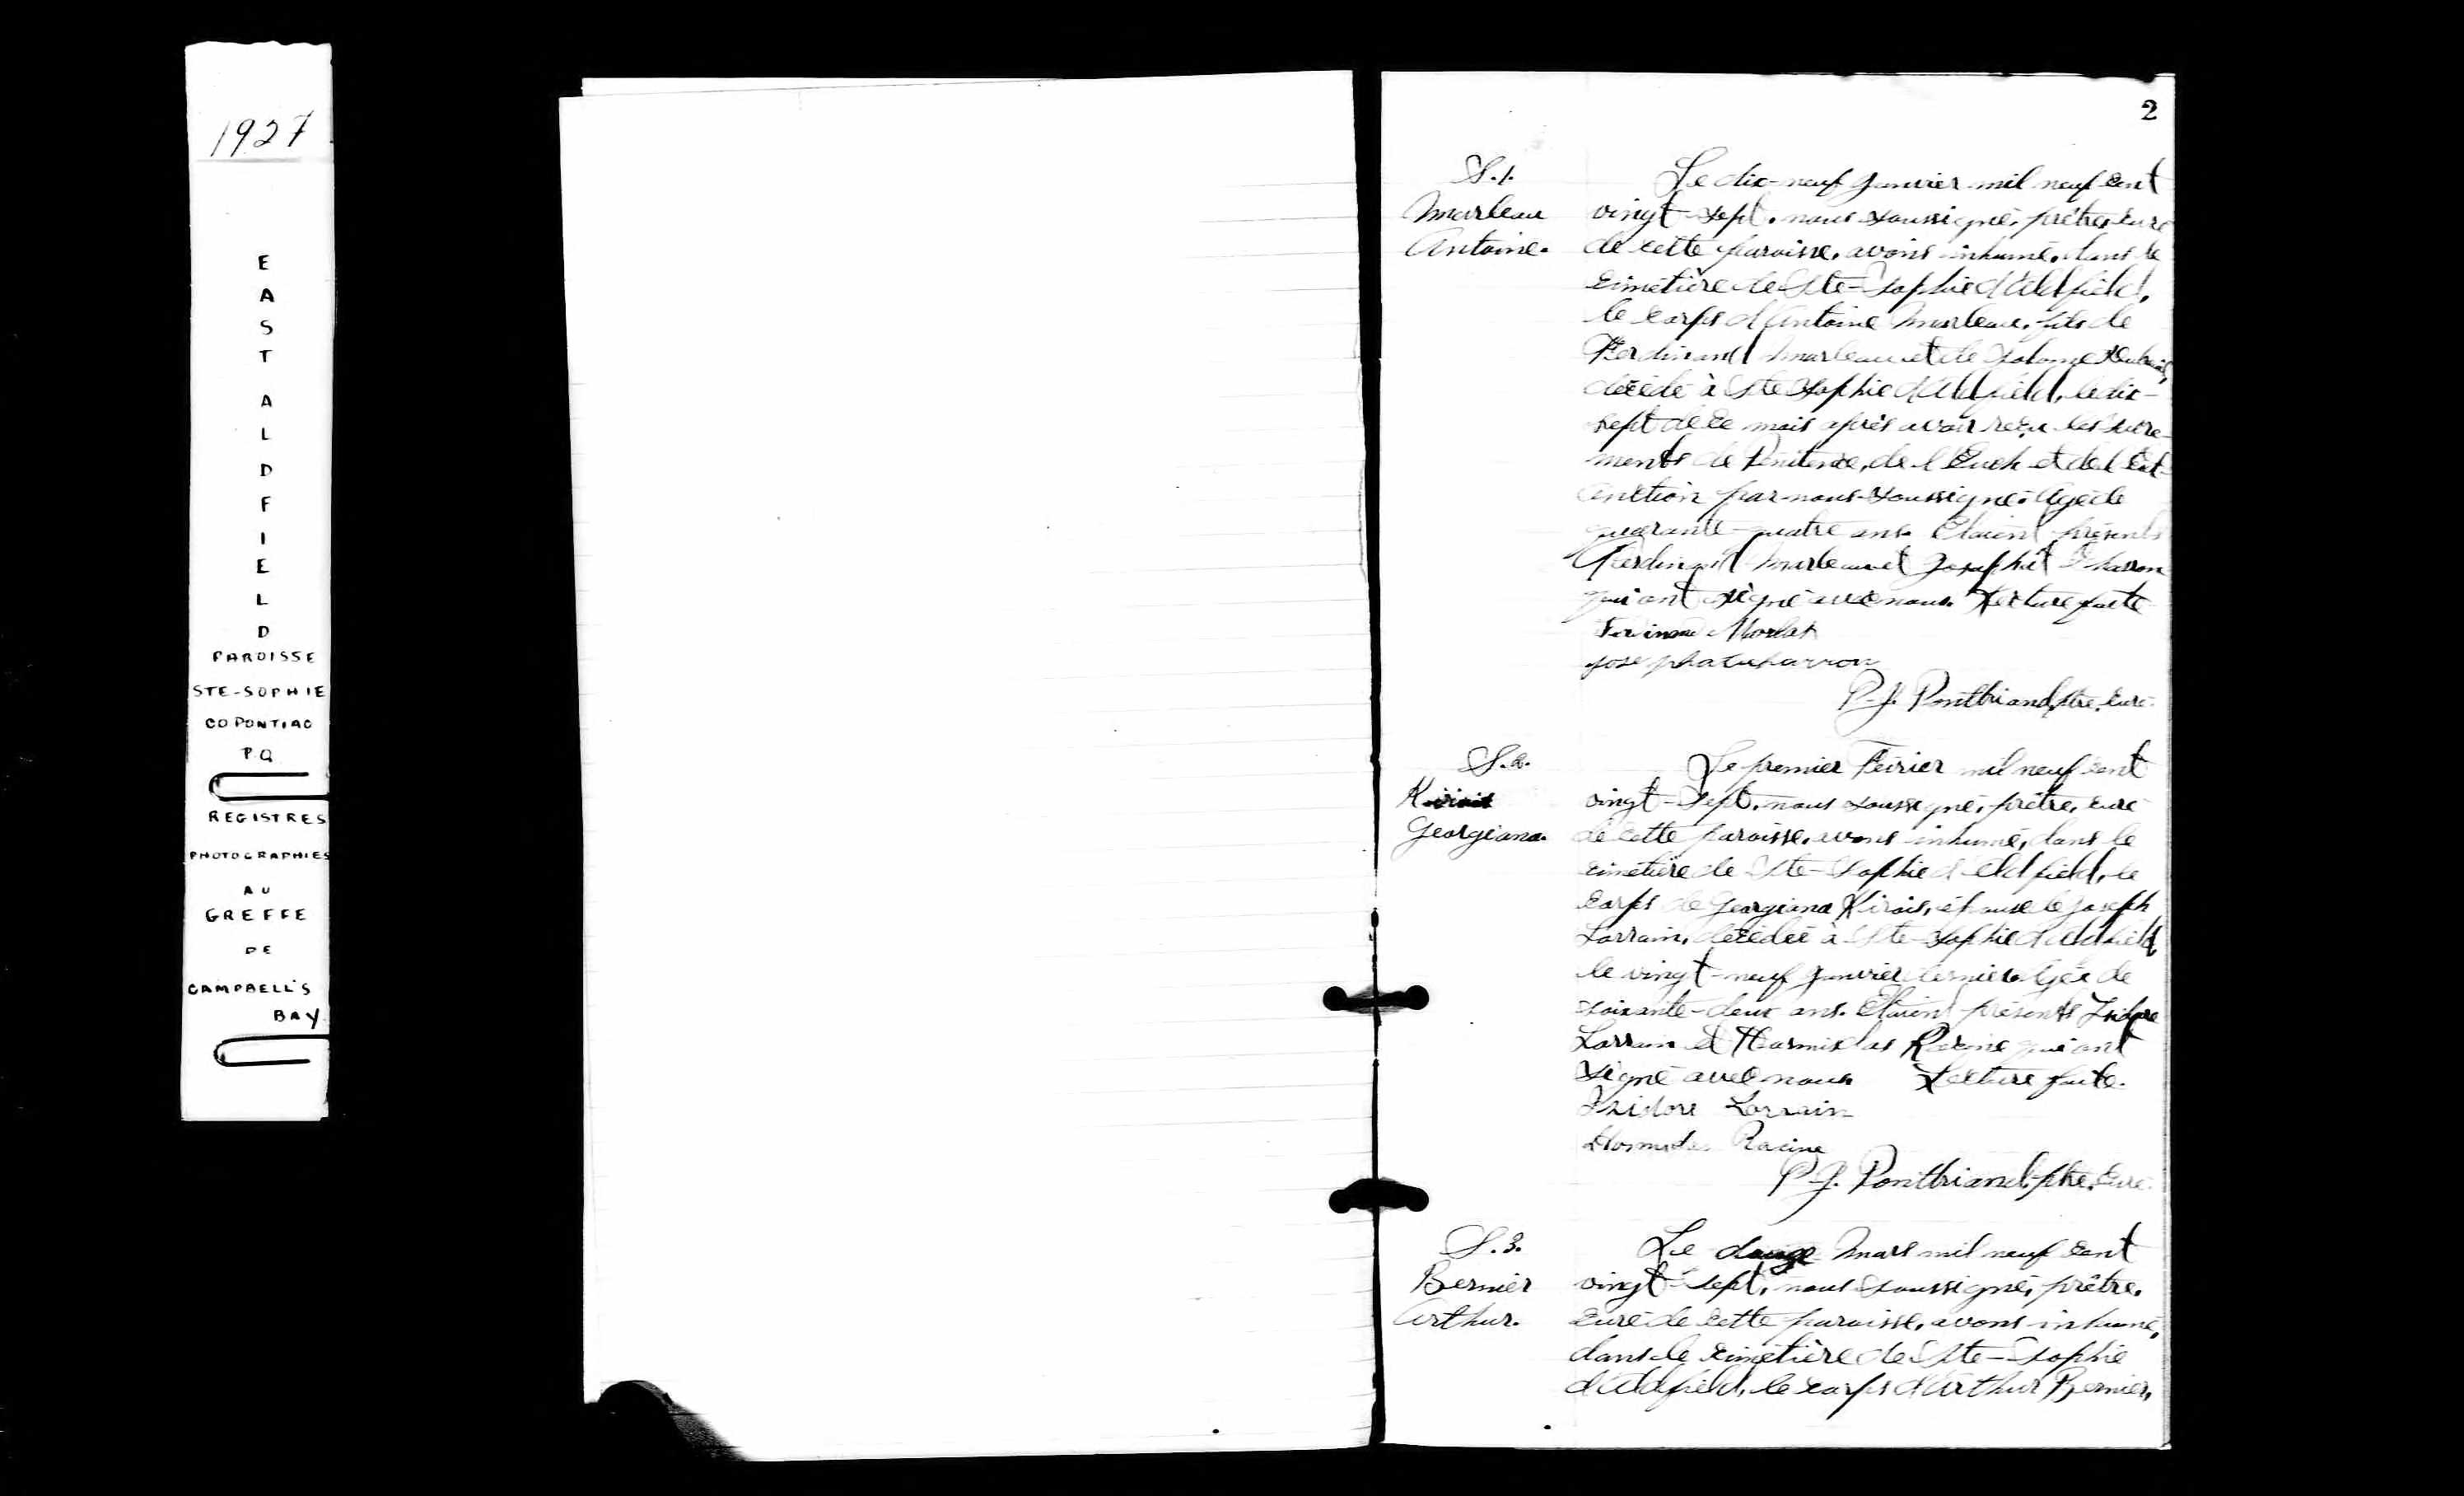 1927
E
A
S
T
A
L
D
F
I
E
L
D
PAROISSE
STE-SOPHIE
CO PONTIAC
P.Q
REGISTRES
PHOTOGRAPHIES
AU
GREFFE
DE
CAMPBELL'S
BAY
2
S.1.
Marleau
Antoine.
Le dix-neuf Janvier mil neuf cent
vingt-sept, nous soussigné, prêtre, curé
de cette paroisse, avons inhumé, dans le
cimetière de Ste-Sophie d'Aldfield,
le corps d'Antoine Marleau, fils de
Ferdinand Marleau et de Salome
décédé à Ste Sophie d'Aldfield, le dix-
sept de ce mois après avoir reçu les sacre-
ments de Pénitence, de l'Euch et de l'Ext-
onction par nous soussigné. Agé de
quarante-quatre ans. Etaient présents
Ferdinand Marleau et Josaphat Charron
qui ont signé avec nous. Lecture faite
Ferinand Morlat
josephatcharron
P.-J. Pontbriand, ptre, curé.
S.2.
Georgiana.
Le premier Février mil neuf cent
vingt-sept, nous soussigné, prêtre, curé
de cette paroisse, avons inhumé, dans le
cimetière de Ste-Sophie d'Aldfield, le
corps de Georgiana Kirois, épouse de Joseph
Lorrain, décédée à Ste-Sophie d'Aldfield,
le vingt-neuf Janvier dernier. Agée de
soixante-deux ans. Etaient présents Isidore
Lorrain et Hormisdas Racine qui ont
signé avec nous Lecture faite.
Isidore Lorrain
Hormidas Racine
P-J. Pontbriand, ptre, curé.
S.3.
Bernier
Arthur.
Le douze Mars mil neuf cent
vingt-sept, nous soussigné, prêtre,
curé de cette paroisse, avons inhumé,
dans le cimetière de Ste-Sophie
d'Aldfield, le corps d'Arthur Bernier,